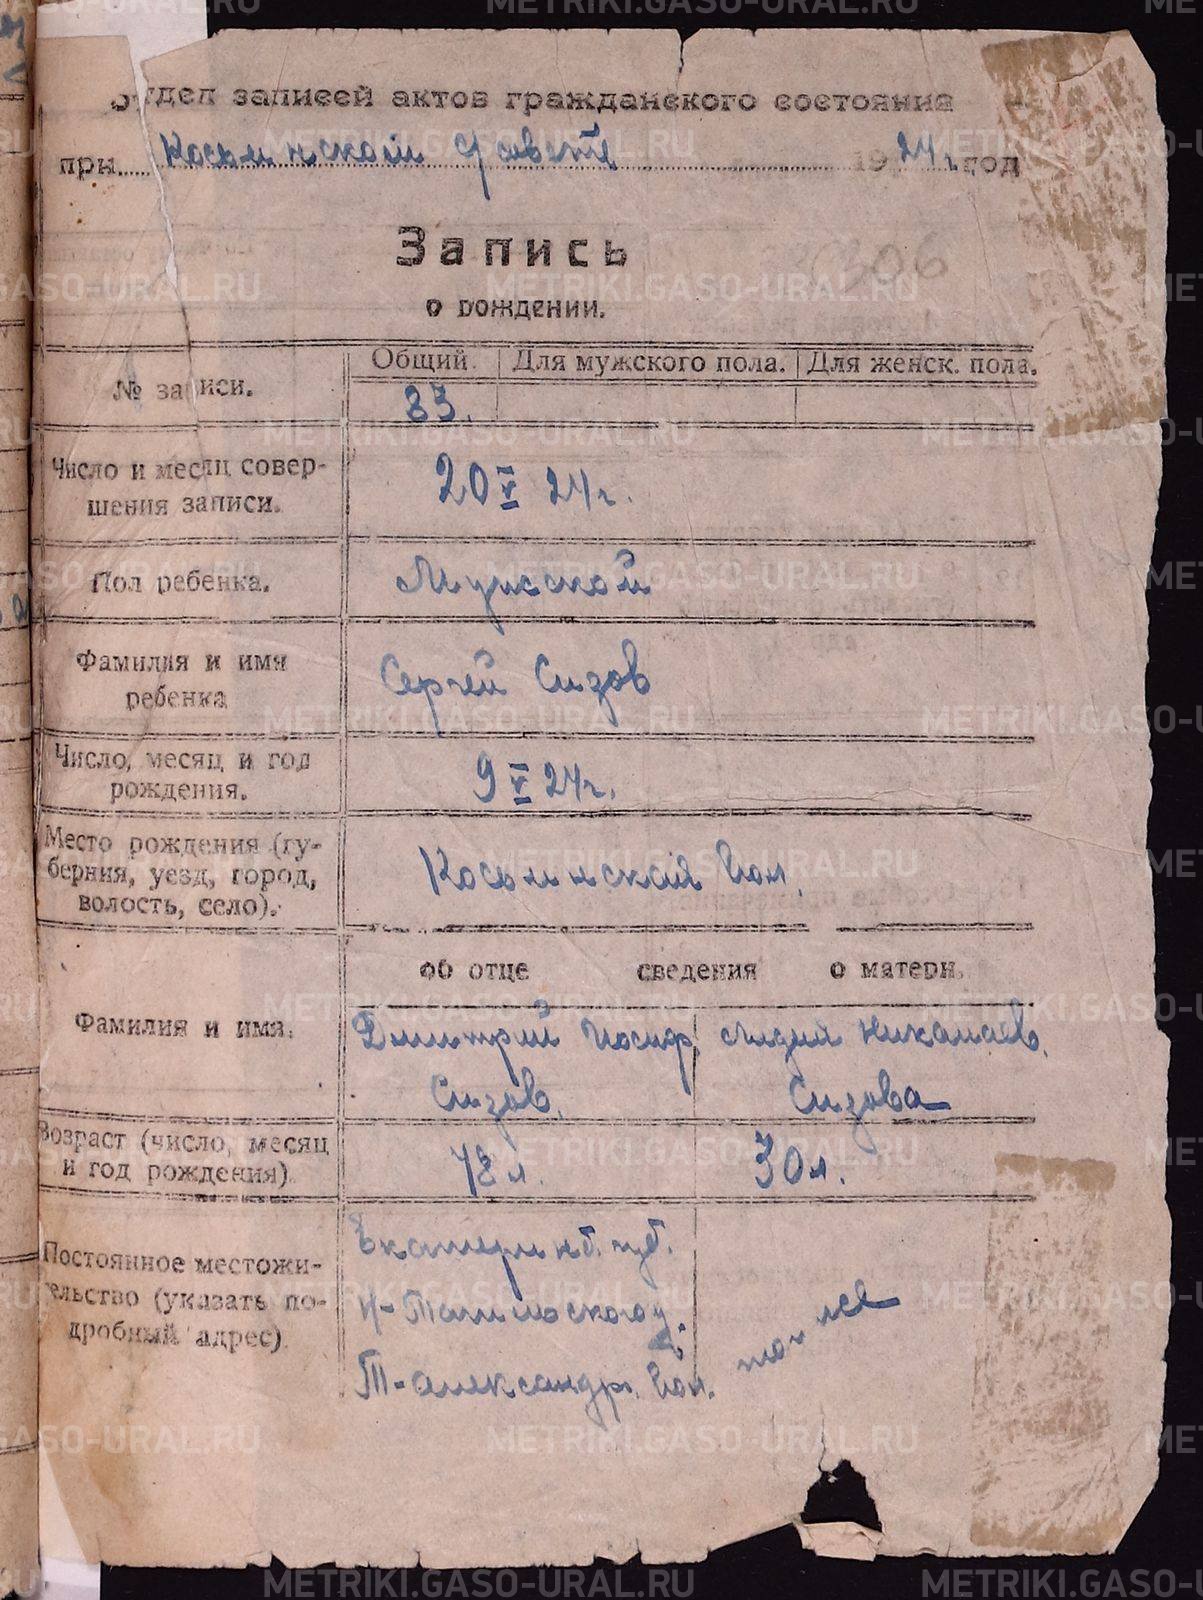 Отдел записей актов гражданского состояния
при Косьинском 1924 г. год
Запись
о рождении.
№ записи. Общий. Для мужского пола. Для женск. пола.
33.
Число и месяц совер-
шения записи. 20 V 24 г.
Пол ребенка. Мужской
Фамилия и имя
ребенка Сергей Сизов
Число, месяц и год
рождения. 9 V 24 г.
Место рождения (гу-
берния, уезд, город,
волость, село). вол.
об отце сведения о матери.
Фамилия и имя. Дмитрий Иосиф. Лидия Николаев.
Сизов. Сизова
Возраст (число, месяц
и год рождения) л. 30 л.
Постоянное местожи-
тельство (указать по-
дробный адрес).
Екатеринб. губ.
Н-Тагильского у.
Т-александр. вол. то же
METRIKI.GASO-URAL.RU